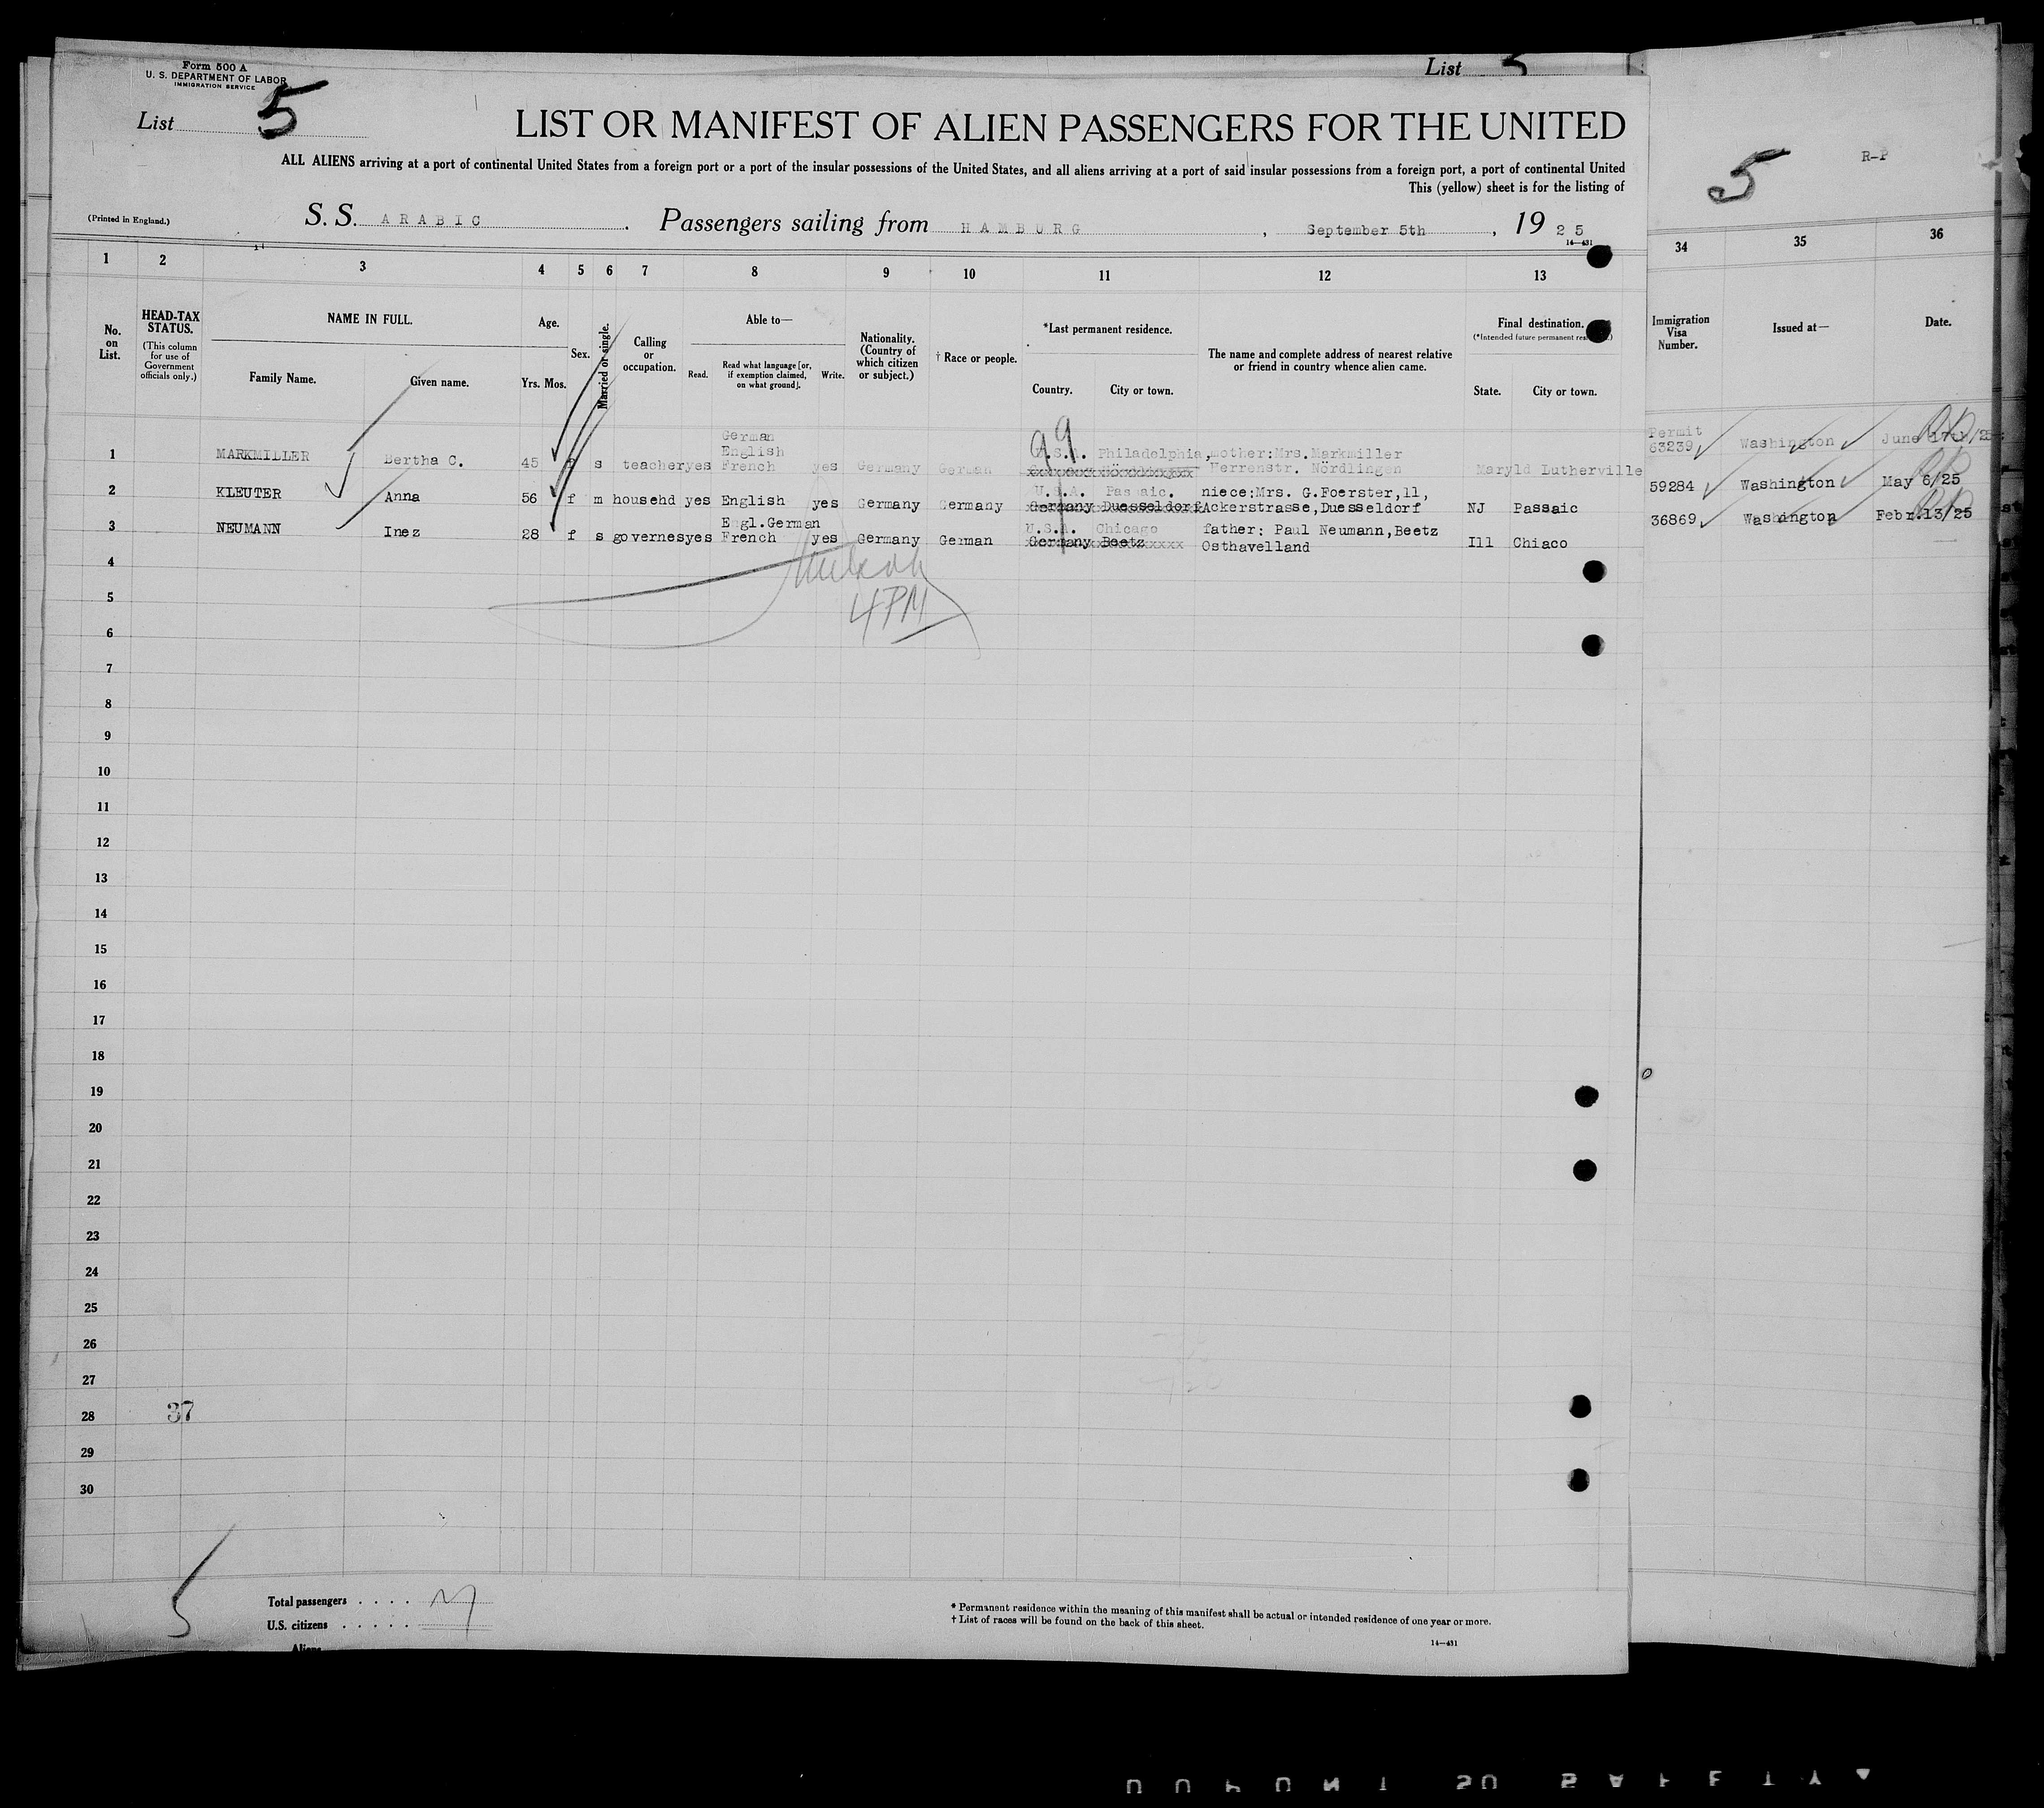 Form 500 A
U. S. DEPARTMENT OF LABOR
IMMIGRATION SERVICE
List 5
List 5
LIST OR MANIFEST OF ALIEN PASSENGERS FOR THE UNITED
ALL ALIENS arriving at a port of continental United States from a foreign port or a port of the insular possessions of the United States, and all aliens arriving at a port of said insular possessions from a foreign port, a port of continental United
This (yellow) sheet is for the listing of
5 R-P
(Printed in England.) S. S. ARABIC . Passengers sailing from HAMBURG , September 5th , 19 25
14—431
1 2 3 4 5 6 7 8 9 10 11 12 13 34 35 36
No. on List.
HEAD-TAX STATUS. (This column for use of Government officials only.)
NAME IN FULL.
Family Name. Given name.
Age.
Yrs. Mos.
Sex.
Married or single.
Calling or occupation.
Able to—
Read. Read what language [or, if exemption claimed, on what ground]. Write.
Nationality. (Country of which citizen or subject.)
† Race or people.
*Last permanent residence.
Country. City or town.
The name and complete address of nearest relative or friend in country whence alien came.
Final destination.
(*Intended future permanent
State. City or town.
Immigration Visa Number.
Issued at—
Date.
1 MARKMILLER Bertha C. 45 f s teacher yes German English French yes Germany German U.S.A. Philadelphia, mother:Mrs.Markmiller Herrenstr. Nördlingen Maryld Lutherville Permit 63239 Washington June 17th/25
2 KLEUTER Anna 56 f m househd yes English yes Germany Germany U.S.A. Passaic. Germany Duesseldorf niece:Mrs. G.Foerster,11, Ackerstrasse,Duesseldorf NJ Passaic 59284 Washington May 6/25
3 NEUMANN Inez 28 f s governes yes Engl.German French yes Germany German U.S.A. Chicago Germany Beetz father: Paul Neumann,Beetz Osthavelland Ill Chiaco 36869 Washington Febr.13/25
4
4 PM
5
6
7
8
9
10
11
12
13
14
15
16
17
18
19
20
21
22
23
24
25
26
27
28 37
29
30
5
Total passengers . . . .
U.S. citizens . . . . .
Aliens
* Permanent residence within the meaning of this manifest shall be actual or intended residence of one year or more.
† List of races will be found on the back of this sheet.
14—431
DUPONT SO SAFETY